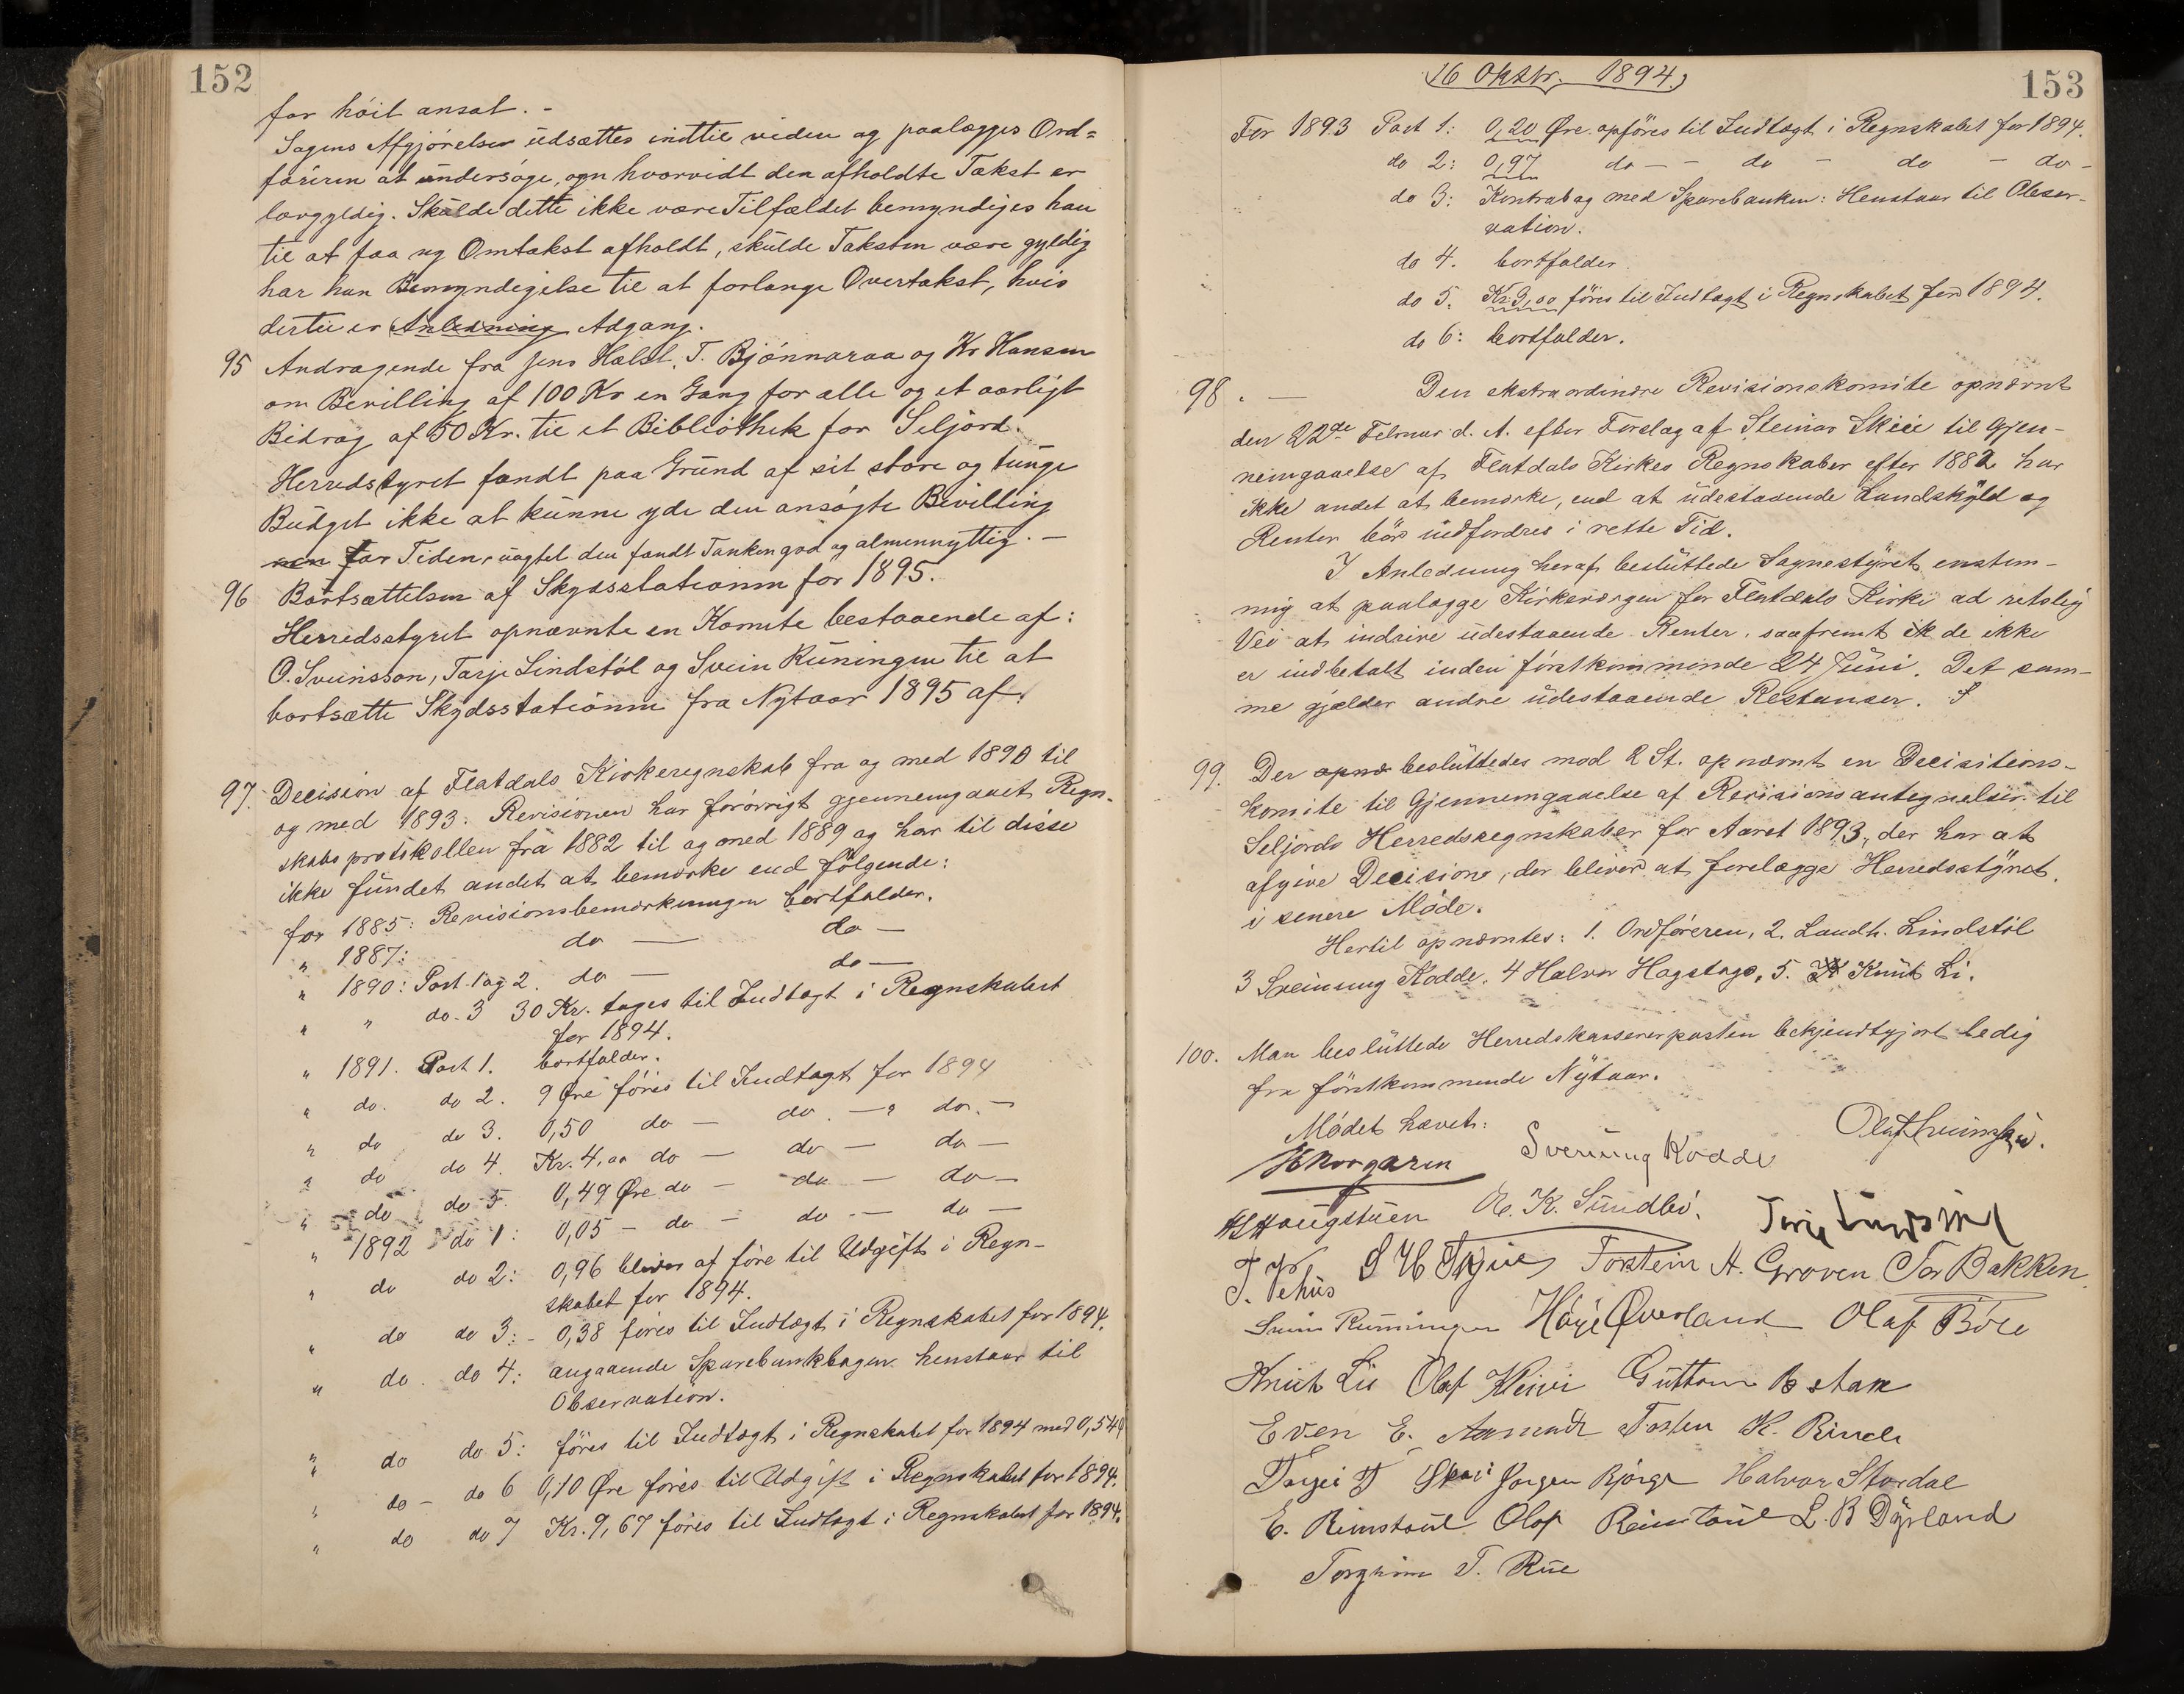 152
for høit ansat. -
Sagens Afgjørelse udsættes indtil viden og paalægges Ord=
føreren at undersøge, om hvorvidt den afholdte Takst er
lovgyldig. Skulde dette ikke være Tilfældet bemyndiges han
til at faa ny Omtakst afholdt, skulde Taksten være gyldig
har han Bemyndigelse til at forlange Overtakst, hvis
dertil er Anledning Adgang.
95 Andragende fra Jens Hald, T. Bjønnaraa og Kr Hansen
om Bevilling af 100 Kr en Gang for alle og et aarligt
Bidrag af 50 Kr. til et Bibliothek for Seljord.
Herredstyret fandt paa Grund af sit store og tunge
Budget ikke at kunne yde den ansøgte Bevilling
for Tiden, uagtet den fandt Tanken god og almennyttig. -
96 Bortsættelsen af Skydsstationen for 1895.
Herredsstyret opnævnte en Komite bestaaende af:
O. Sveinsson, Tarje Lindstøl og Svein Runingen til at
bortsætte Skydsstationen fra Nytaar 1895 af.
97. Decision af Flatdals Kirkeregnskab fra og med 1890 til
og med 1893. Revisionen har forøvrigt gjennemgaaet Regn-
skabsprotokollen fra 1882 til og med 1889 og har til disse
ikke fundet andet at bemærke end følgende:
for 1885: Revisionsbemærkningen bortfalder.
" 1887: do — do —
" 1890: Post 1 og 2. do — do —
" " do. 3 30 Kr. tages til Indtægt i Regnskabet
for 1894.
" 1891. Post 1. bortfalder.
" do. do 2. 9 Øre føres til Indtægt for 1894
" do do 3. 0,50 do — do. — " do. —
" do do 4. Kr. 4,00 do — do — do —
" do do 5. 0,49 Øre do — do — do —
" 1892 do 1: 0,05 - do — do — do —
" do do 2: 0,96 bliver at føre til Udgift i Regn-
skabet for 1894.
" do do 3: - 0,38 føres til Indtægt i Regnskabet for 1894.
" do. do 4: angaaende Sparebankbogen henstaar til
Observation.
" do do 5: føres til Indtægt i Regnskabet for 1894 med 0,54
" do - do 6 0,10 Øre føres til Udgift i Regnskabet for 1894.
" do do 7 Kr. 9,67 føres til Indtægt i Regnskabet for 1894.
153
16 Oktbr. 1894.
For 1893 Post 1: 0,20 Øre opføres til Indtægt i Regnskabet for 1894.
do 2: 0,97 do - - do - do - do -
do 3: Kontrabog med Sparebanken: Henstaar til Obser-
vation.
do 4. bortfalder.
do 5. Kr. 9,00 føres til Indtægt i Regnskabet for 1894.
do 6: bortfalder.
98. — Den ekstraordinære Revisionskomite opnævnt
den 22de Februar d. A. efter Forslag af Steinar Skiei til Gjen-
nemgaaelse af Flatdals Kirkes Regnskaber efter 1882 har
ikke andet at bemærke, end at udestaaende Landskyld og
Renter bør indfordres i rette Tid.
I Anledning heraf besluttede Sognestyret enstem-
mig at paalægge Kirkeværgen for Flatdals Kirke ad retslig
Vei at inddrive udestaaende Renter, saafremt de ikke
er indbetalt inden førstkommende 24 Juni. Det sam-
me gjælder andre udestaaende Restanser.
99. Der besluttedes mod 2 St. opnævnt en Decisitions-
komite til Gjennemgaaelse af Revisionsantegnelser til
Seljords Herredsregnskaber for Aaret 1893, der har at
afgive Decision, der bliver at forelægge Herredsstyret
i senere Møde.
Hertil opnævntes: 1. Ordføreren, 2. Landh. Lindstøl
3 Sveinung Rodde, 4 Halvor Hagstage, 5. Knut Li.
100. Man besluttede Herredskassererposten bekjendtgjort ledig
fra førstkommende Nytaar.
Mødet hævet.
Sveinung Rodde Olaf Sveinsson.
H Haugstuen O. K. Sundbø. Tarje Lindstøl
T. Vehus Torstein H. Groven Tor Bakken
Svein Runningen Høye Øverland Olaf Bøle
Knut Lii Olaf Kleivi Guttorm Bstak
Even E. Aamodt Tosten K. Rinde
Torgei T Skori Jørgen Bjørge Halvor Stordal
E. Rimstoul Olaf Reinstoul L. B Dyrland
Torgrim T. Rue